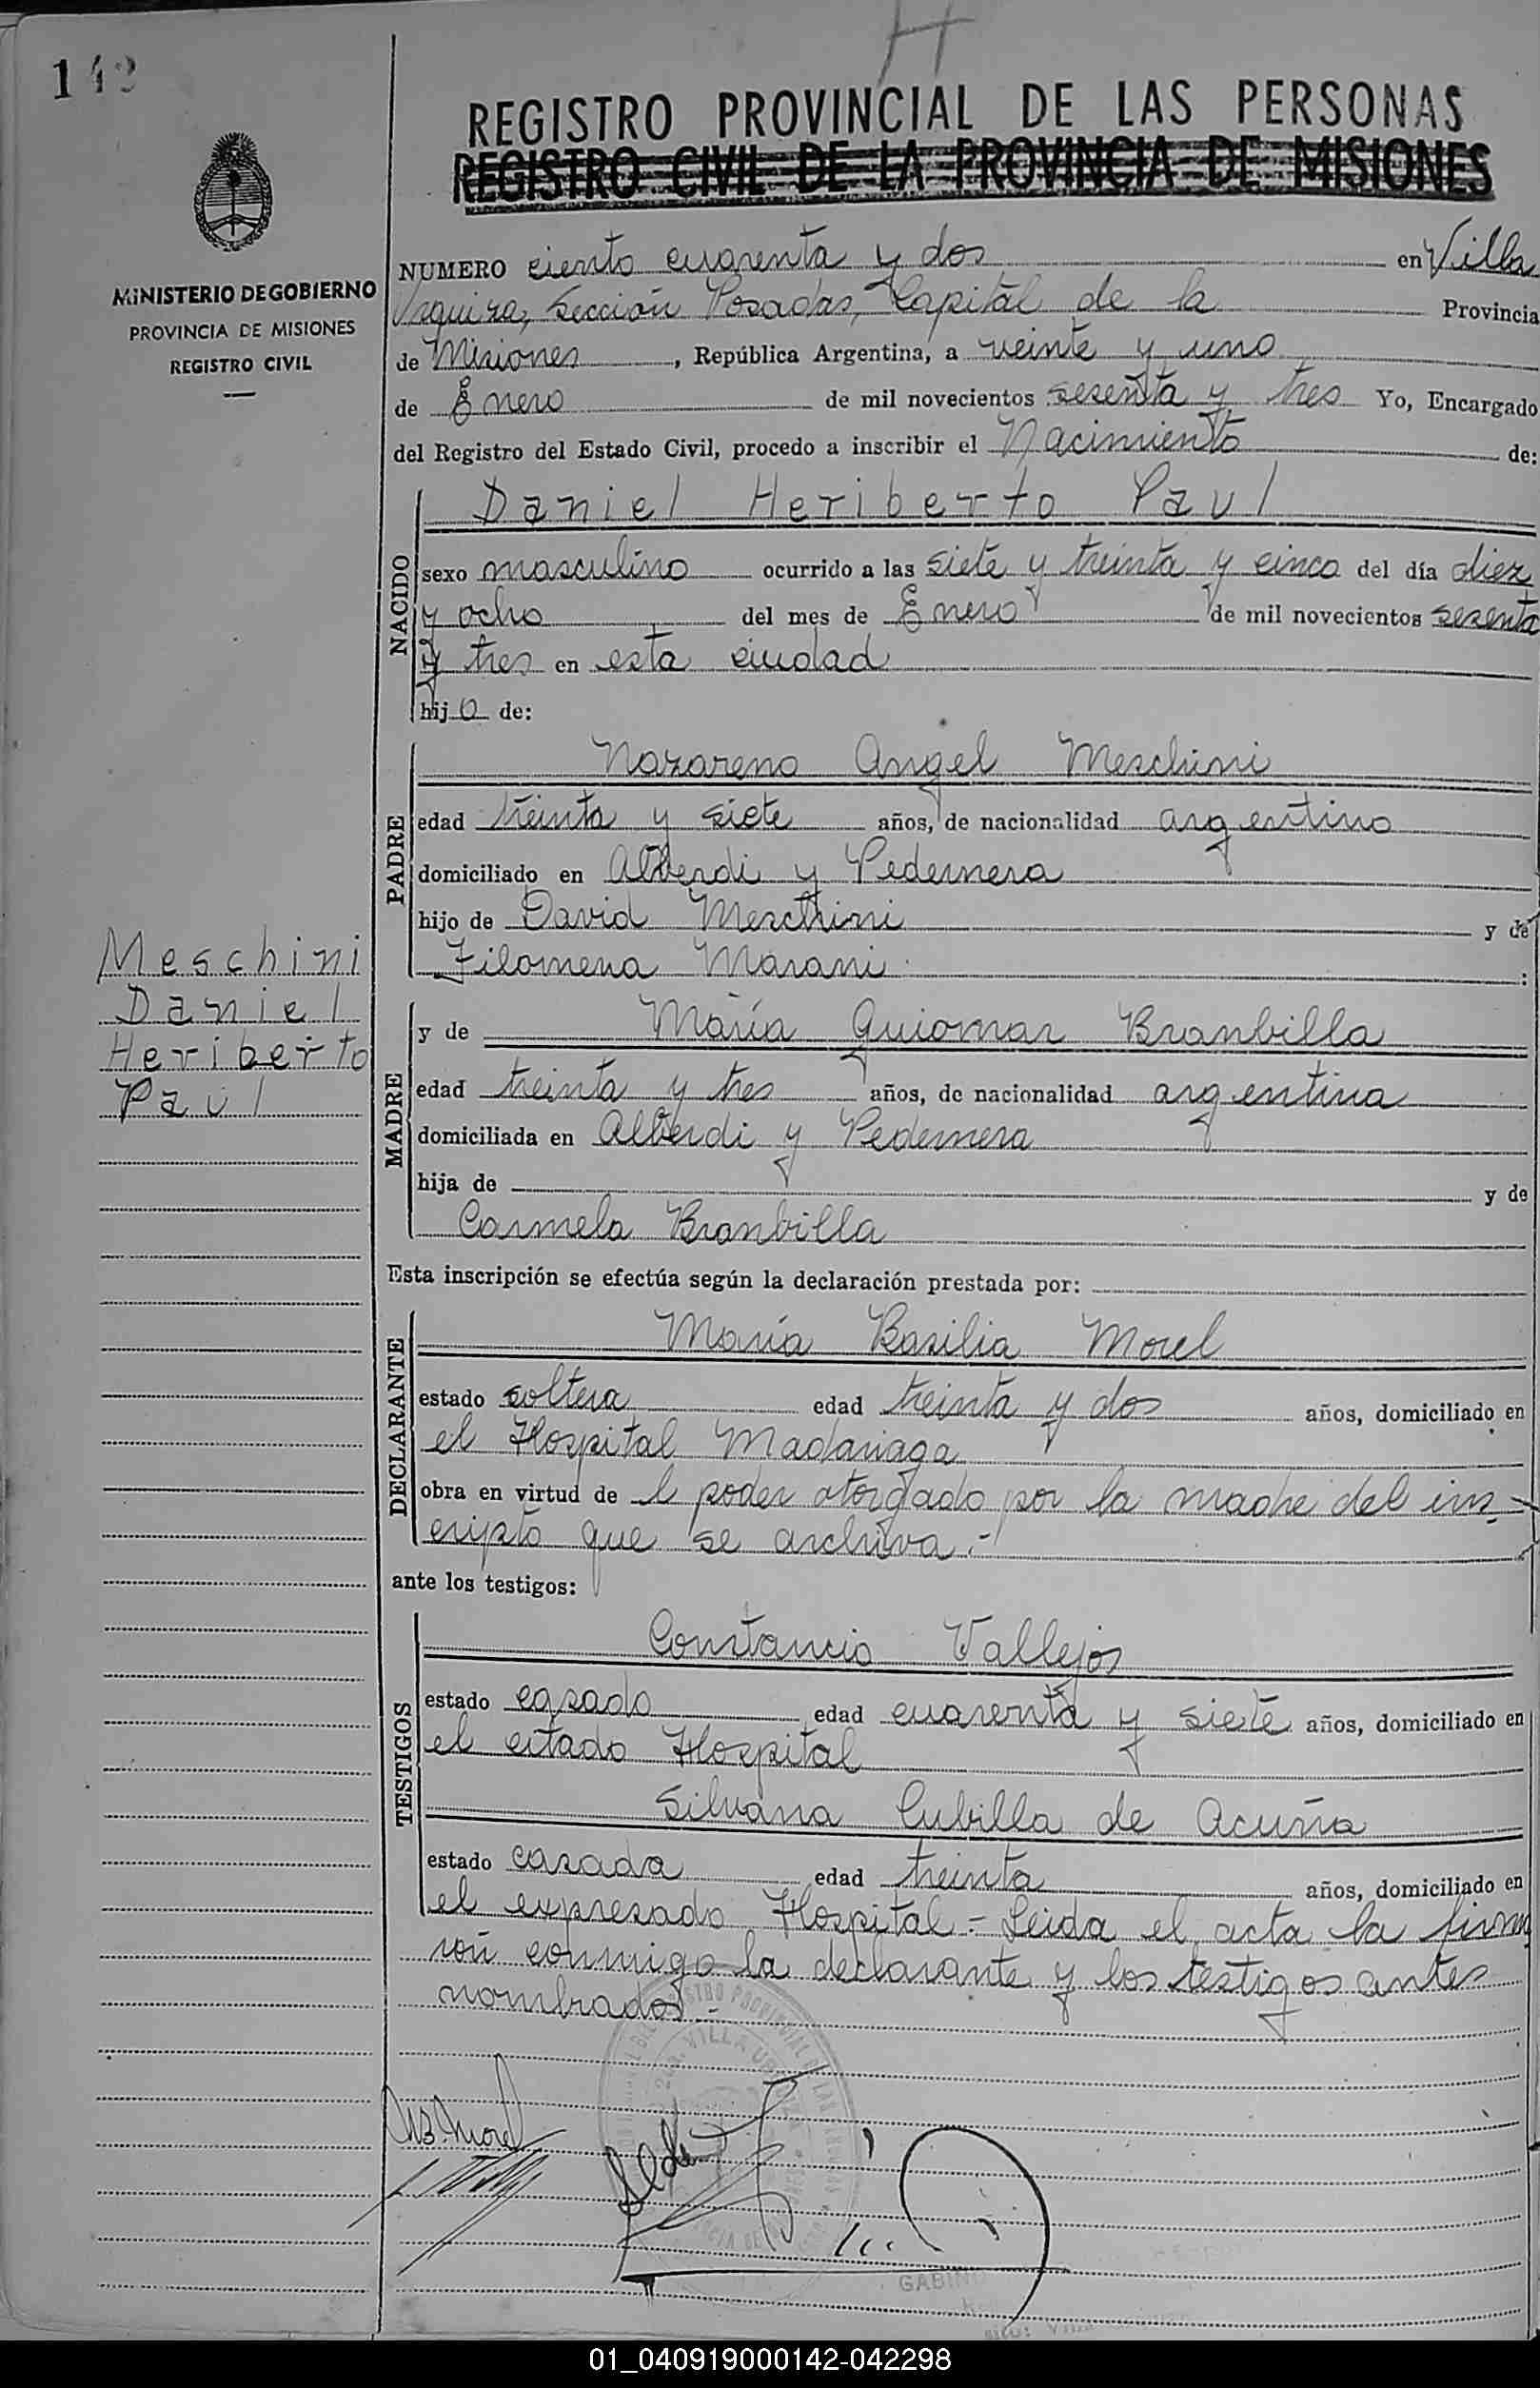 H
142
REGISTRO PROVINCIAL DE LAS PERSONAS
REGISTRO CIVIL DE LA PROVINCIA DE MISIONES
MINISTERIO DE GOBIERNO
PROVINCIA DE MISIONES
REGISTRO CIVIL
NUMERO ciento cuarenta y dos en Villa
Urquiza, Sección Posadas, Capital de la Provincia
de Misiones, República Argentina, a veinte y uno
de Enero de mil novecientos sesenta y tres Yo, Encargado
del Registro del Estado Civil, procedo a inscribir el Nacimiento de:
NACIDO
Daniel Heriberto Paul
sexo masculino ocurrido a las siete y treinta y cinco del día diez
y ocho del mes de Enero de mil novecientos sesenta
y tres en esta ciudad
hijo de:
PADRE
Nazareno Angel Meschini
edad treinta y siete años, de nacionalidad argentino
domiciliado en Alberdi y Pedernera
hijo de David Mescthini y de
Filomena Marani :
Meschini
Daniel
Heriberto
Paul
MADRE
y de María Guiomar Branbilla
edad treinta y tres años, de nacionalidad argentina
domiciliada en Alberdi y Pedernera
hija de y de
Carmela Branbilla
Esta inscripción se efectúa según la declaración prestada por:
DECLARANTE
María Basilia Morel
estado soltera edad treinta y dos años, domiciliado en
el Hospital Madariaga
obra en virtud de l poder otorgado por la madre del ins-
cripto que se archiva.-
ante los testigos:
TESTIGOS
Constancio Vallejos
estado casado edad cuarenta y siete años, domiciliado en
el citado Hospital
Silvana Cubilla de Acuña
estado casada edad treinta años, domiciliado en
el expresado Hospital.- Leida el acta la firma
ron conmigo la declarante y los testigos antes
nombrados.-
M B. Morel
VILLA URQUIZA
GABINO
01_040919000142-042298